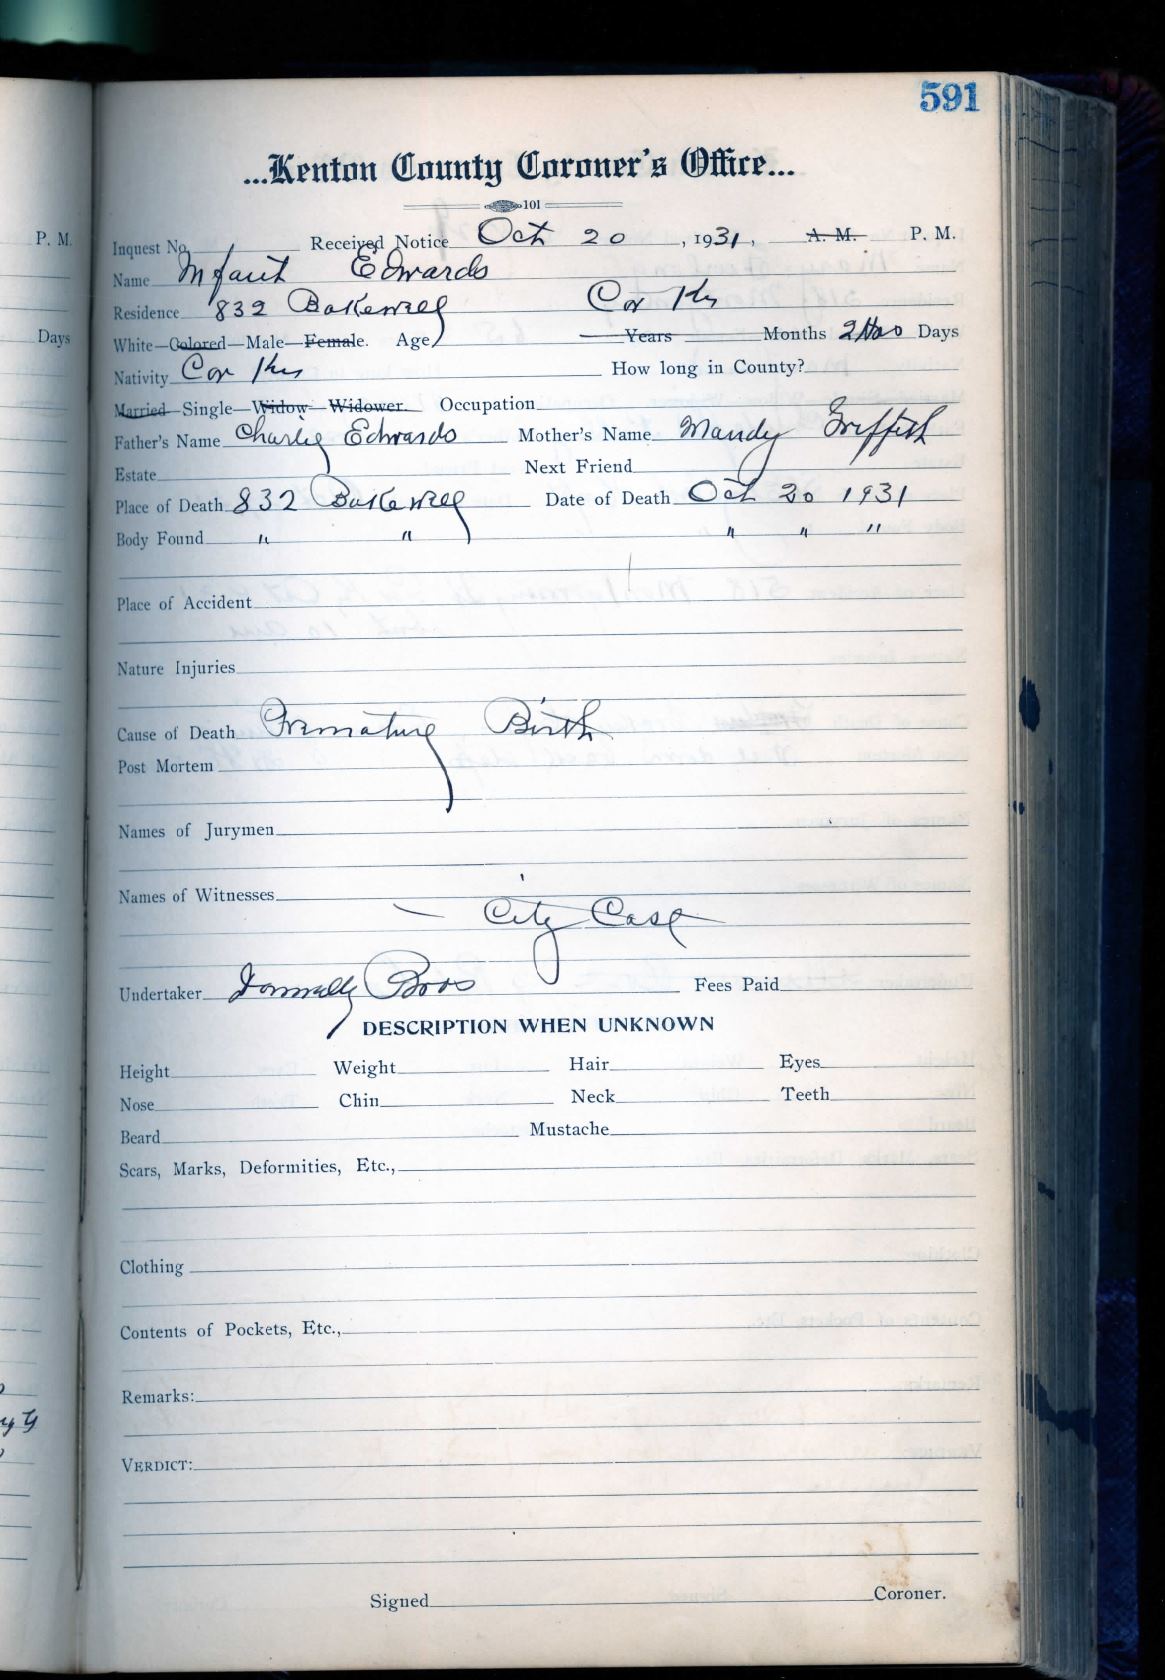 591
...Kenton County Coroner's Office...
101
P. M.
Inquest No. Received Notice Oct 20, 1931, A. M. P. M.
Name Infant Edwards
Residence 832 Bakewell Cov Ky
Days
White—Colored—Male—Female. Age Years Months 2 Days
Nativity Cov Ky How long in County?
Married—Single—Widow—Widower. Occupation
Father's Name Charley Edwards Mother's Name Mandy Griffith
Estate Next Friend
Place of Death 832 Bakewell Date of Death Oct 20 1931
Body Found " " " " "
Place of Accident
Nature Injuries
Cause of Death Premature Birth
Post Mortem
Names of Jurymen
Names of Witnesses
— City Case
Undertaker Donnelly Bros Fees Paid
DESCRIPTION WHEN UNKNOWN
Height Weight Hair Eyes
Nose Chin Neck Teeth
Beard Mustache
Scars, Marks, Deformities, Etc.,
Clothing
Contents of Pockets, Etc.,
Remarks:
VERDICT:
Signed Coroner.